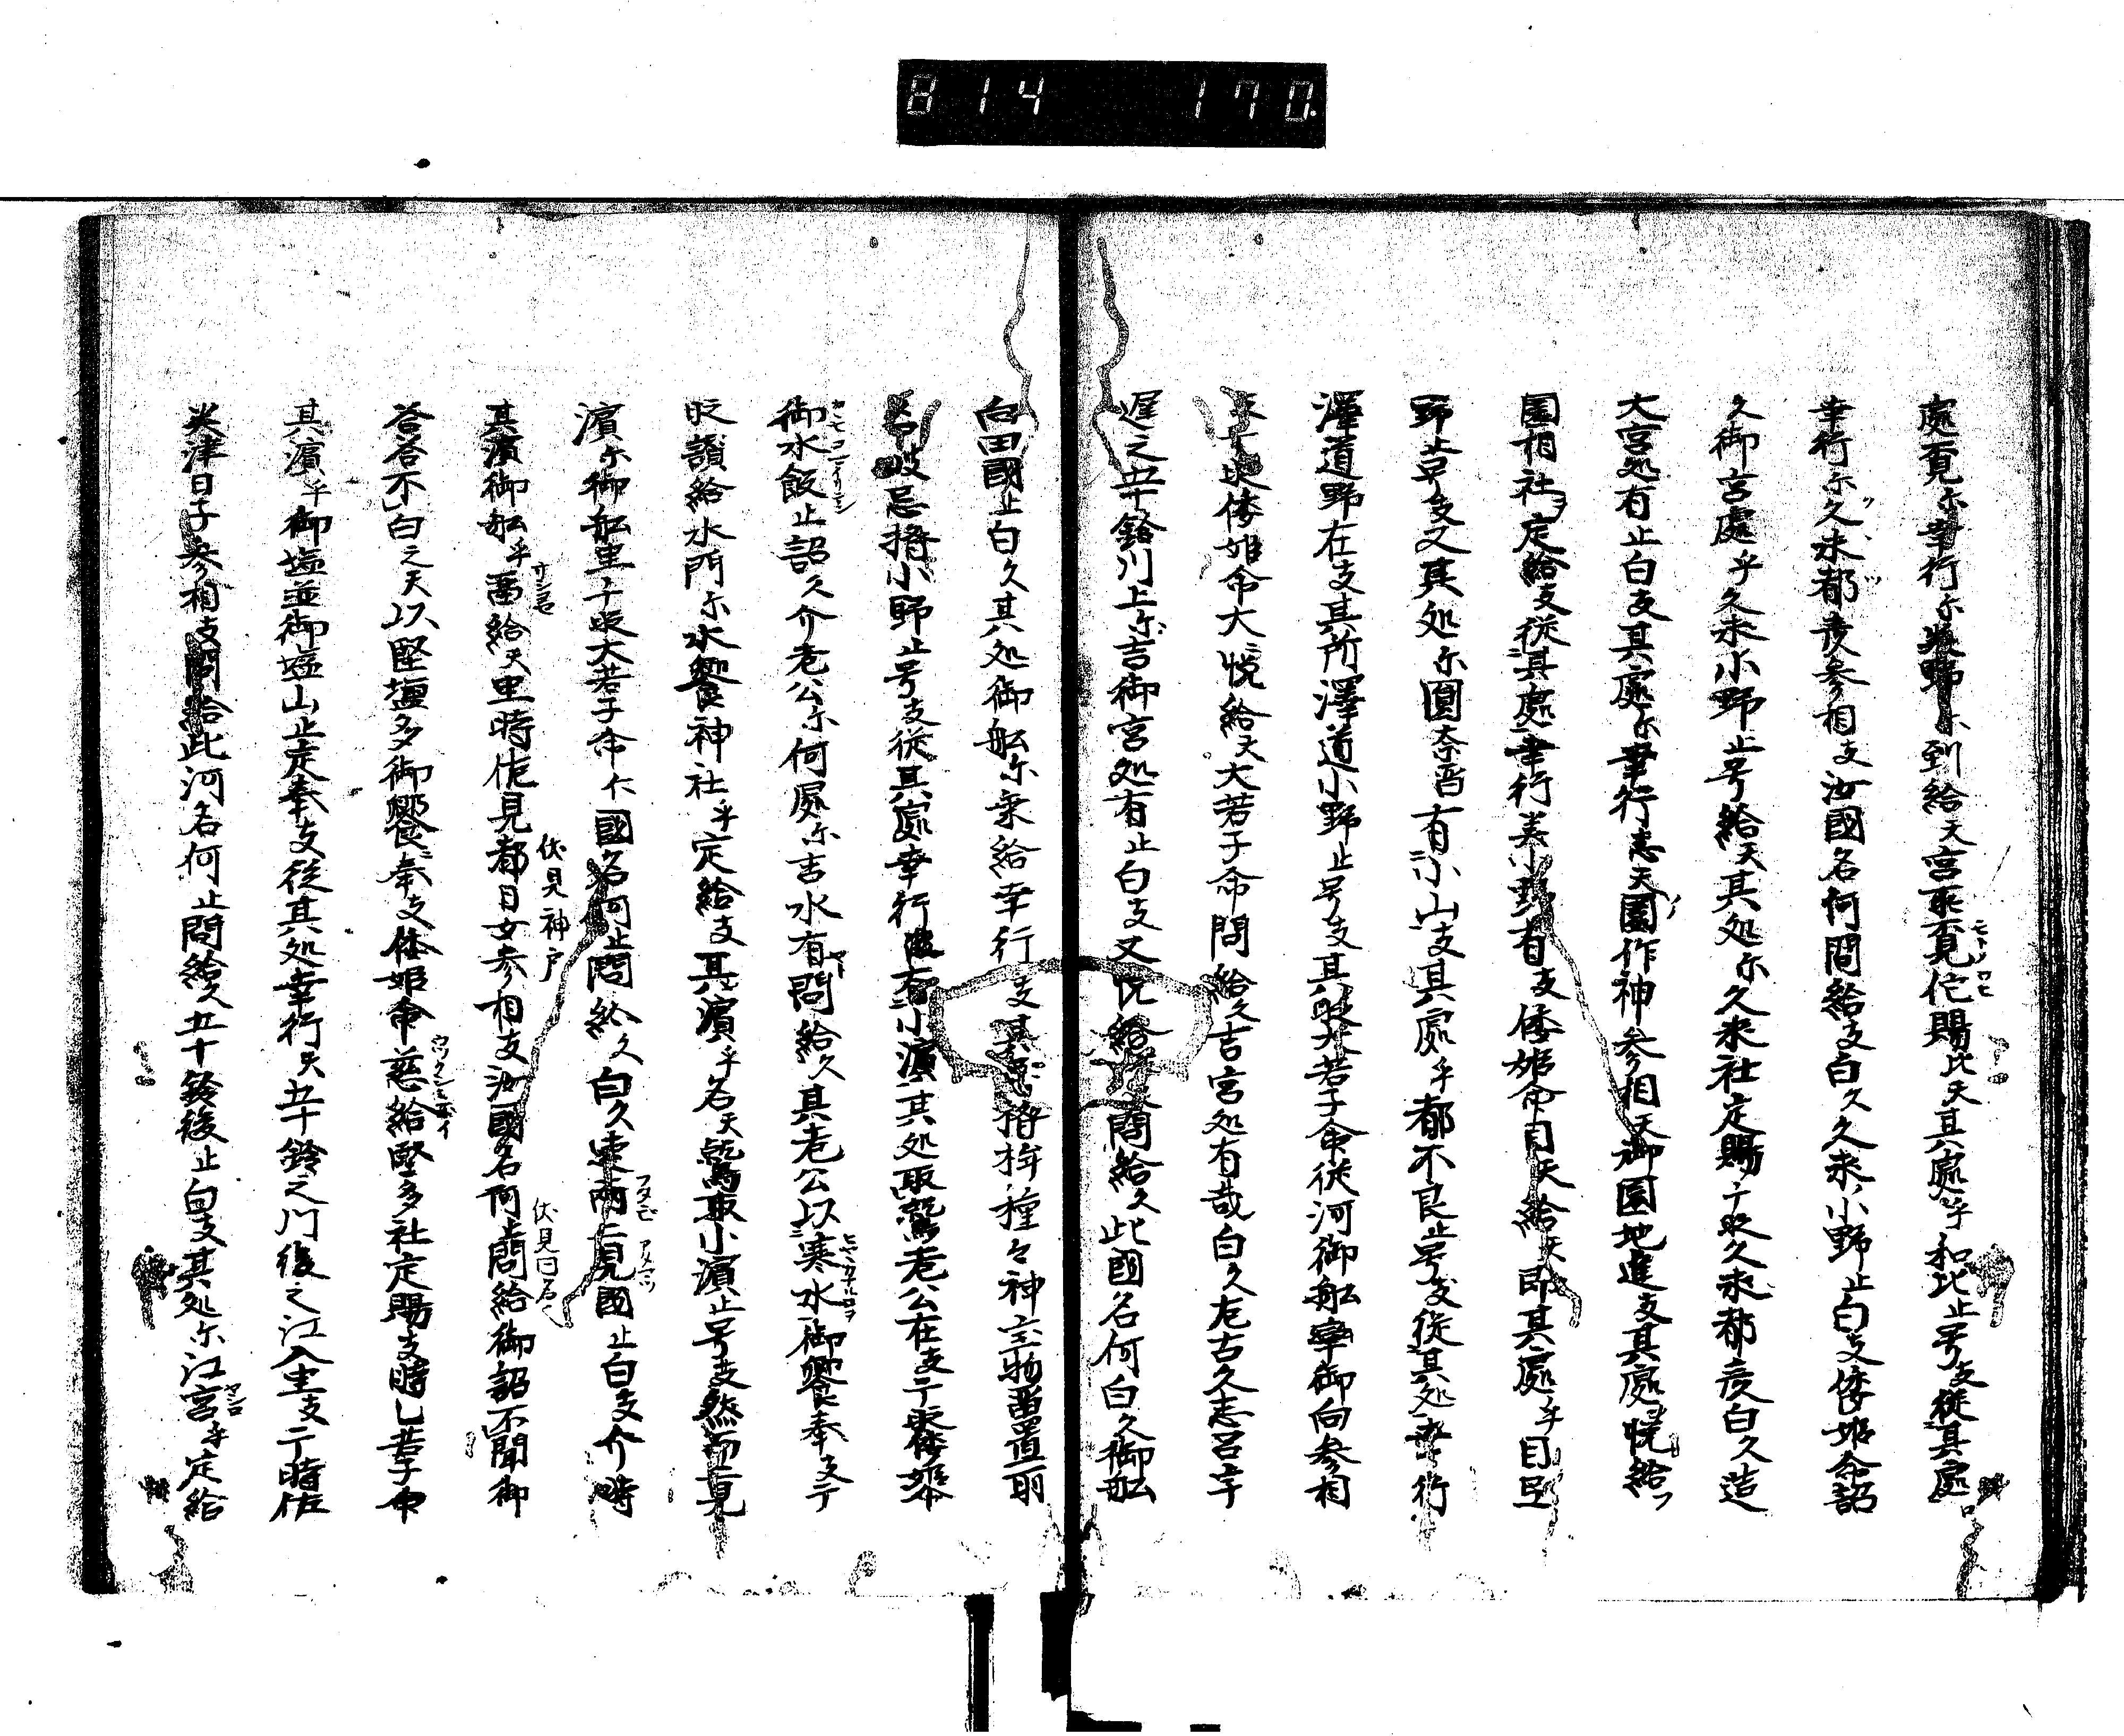 814 170.
處覓尓幸行尓湌野尓到給天宮乘覓佗賜比天其處乎和比止号支從其處
幸行尓久求都彦参相支汝國名何問給支白久久求小野止白支倭姫命詔
久御宮處乎久求小野止号給天其処尓久求社定賜于時久求都彦白久造
大宮処有止白支其處尓幸行志天園作神参相天御園地進支其處悦給フ
園相社定給支從其處幸行美小野有支倭姫命目天給天即其處乎目弖
野止号支又其処尓圓奈留有小山支其處乎都不良止号支從其処幸行
澤道野在支其所澤道小野止号支其時大若子命從河御舩率御向参相
于時倭姫命大悦給天大若子命問給久吉宮処有哉白久佐古久志呂宇
遅之五十鈴川上尓吉御宮処有止白支又悦給問給久此國名何白久御舩
向田國止白久其処御舩尓乗給幸行支其忌楯桙種々神宝物畱置所
名忌楯小野止号支從其處幸行有小濱其処取鷲老公在支于時倭姫命
御水飯止詔久介老公尓何處尓吉水有問給久其老公以寒水御饗奉支于
時讃給水門尓水饗神社乎定給支其濱乎名天鷲取小濱止号支然而二見
濱尓御舩坐于時大若子命仁國名何止問給久白久速雨二見國止白支介時
其濱御舩乎畱給天坐時佐見都日女参相支汝國名何止問給御詔不聞御
伏見神戸
答答不白之天以堅塩多御饗奉支倭姫命慈給堅多社定賜支時乙若子命
其濱乎御塩並御塩山止定奉支從其処幸行天五十鈴之門後之江入坐支于時佐
美津日子参相支問給此河名何止問給久五十鈴後止白支其処尓江宮乎定給